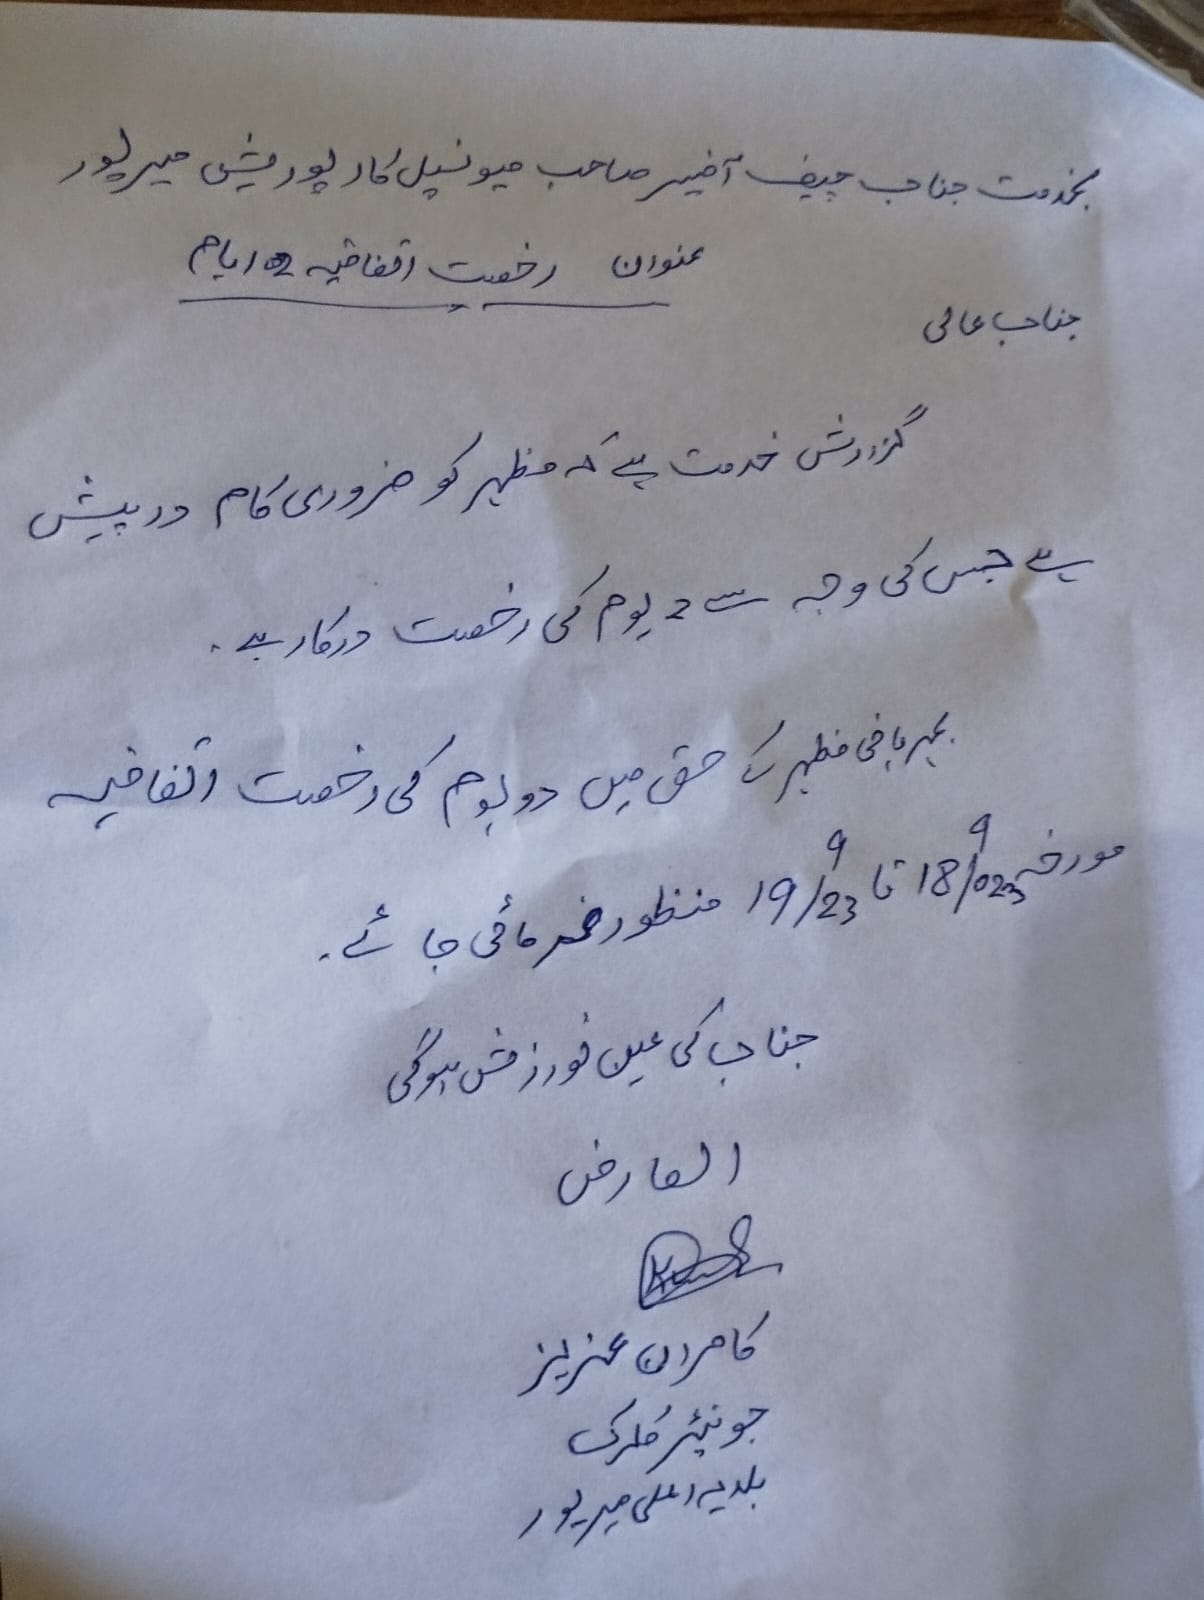 بخدمت جناب چیف آفیسر صاحب میونسپل کارپوریشن میرپور
عنوان رخصت اتفاقیہ 02 ایام
جناب عالی
گزارش خدمت ہے کہ مظہر کو ضروری کام درپیش
ہے جس کی وجہ سے 2 یوم کی رخصت درکار ہے۔
بمہربانی مظہر کے حق میں دو یوم کی رخصت اتفاقیہ
مورخہ 18/9/023 تا 19/9/23 منظور فرمائی جائے۔
جناب کی عین نوازش ہوگی
العارض
کامران عزیز
جونیئر کلرک
بلدیہ اعلی میرپور